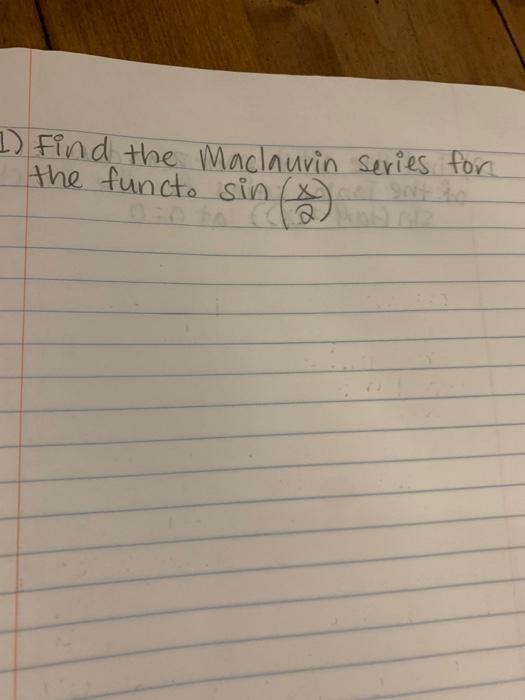 1) Find the Maclaurin series for
the funct. sin (x/2)